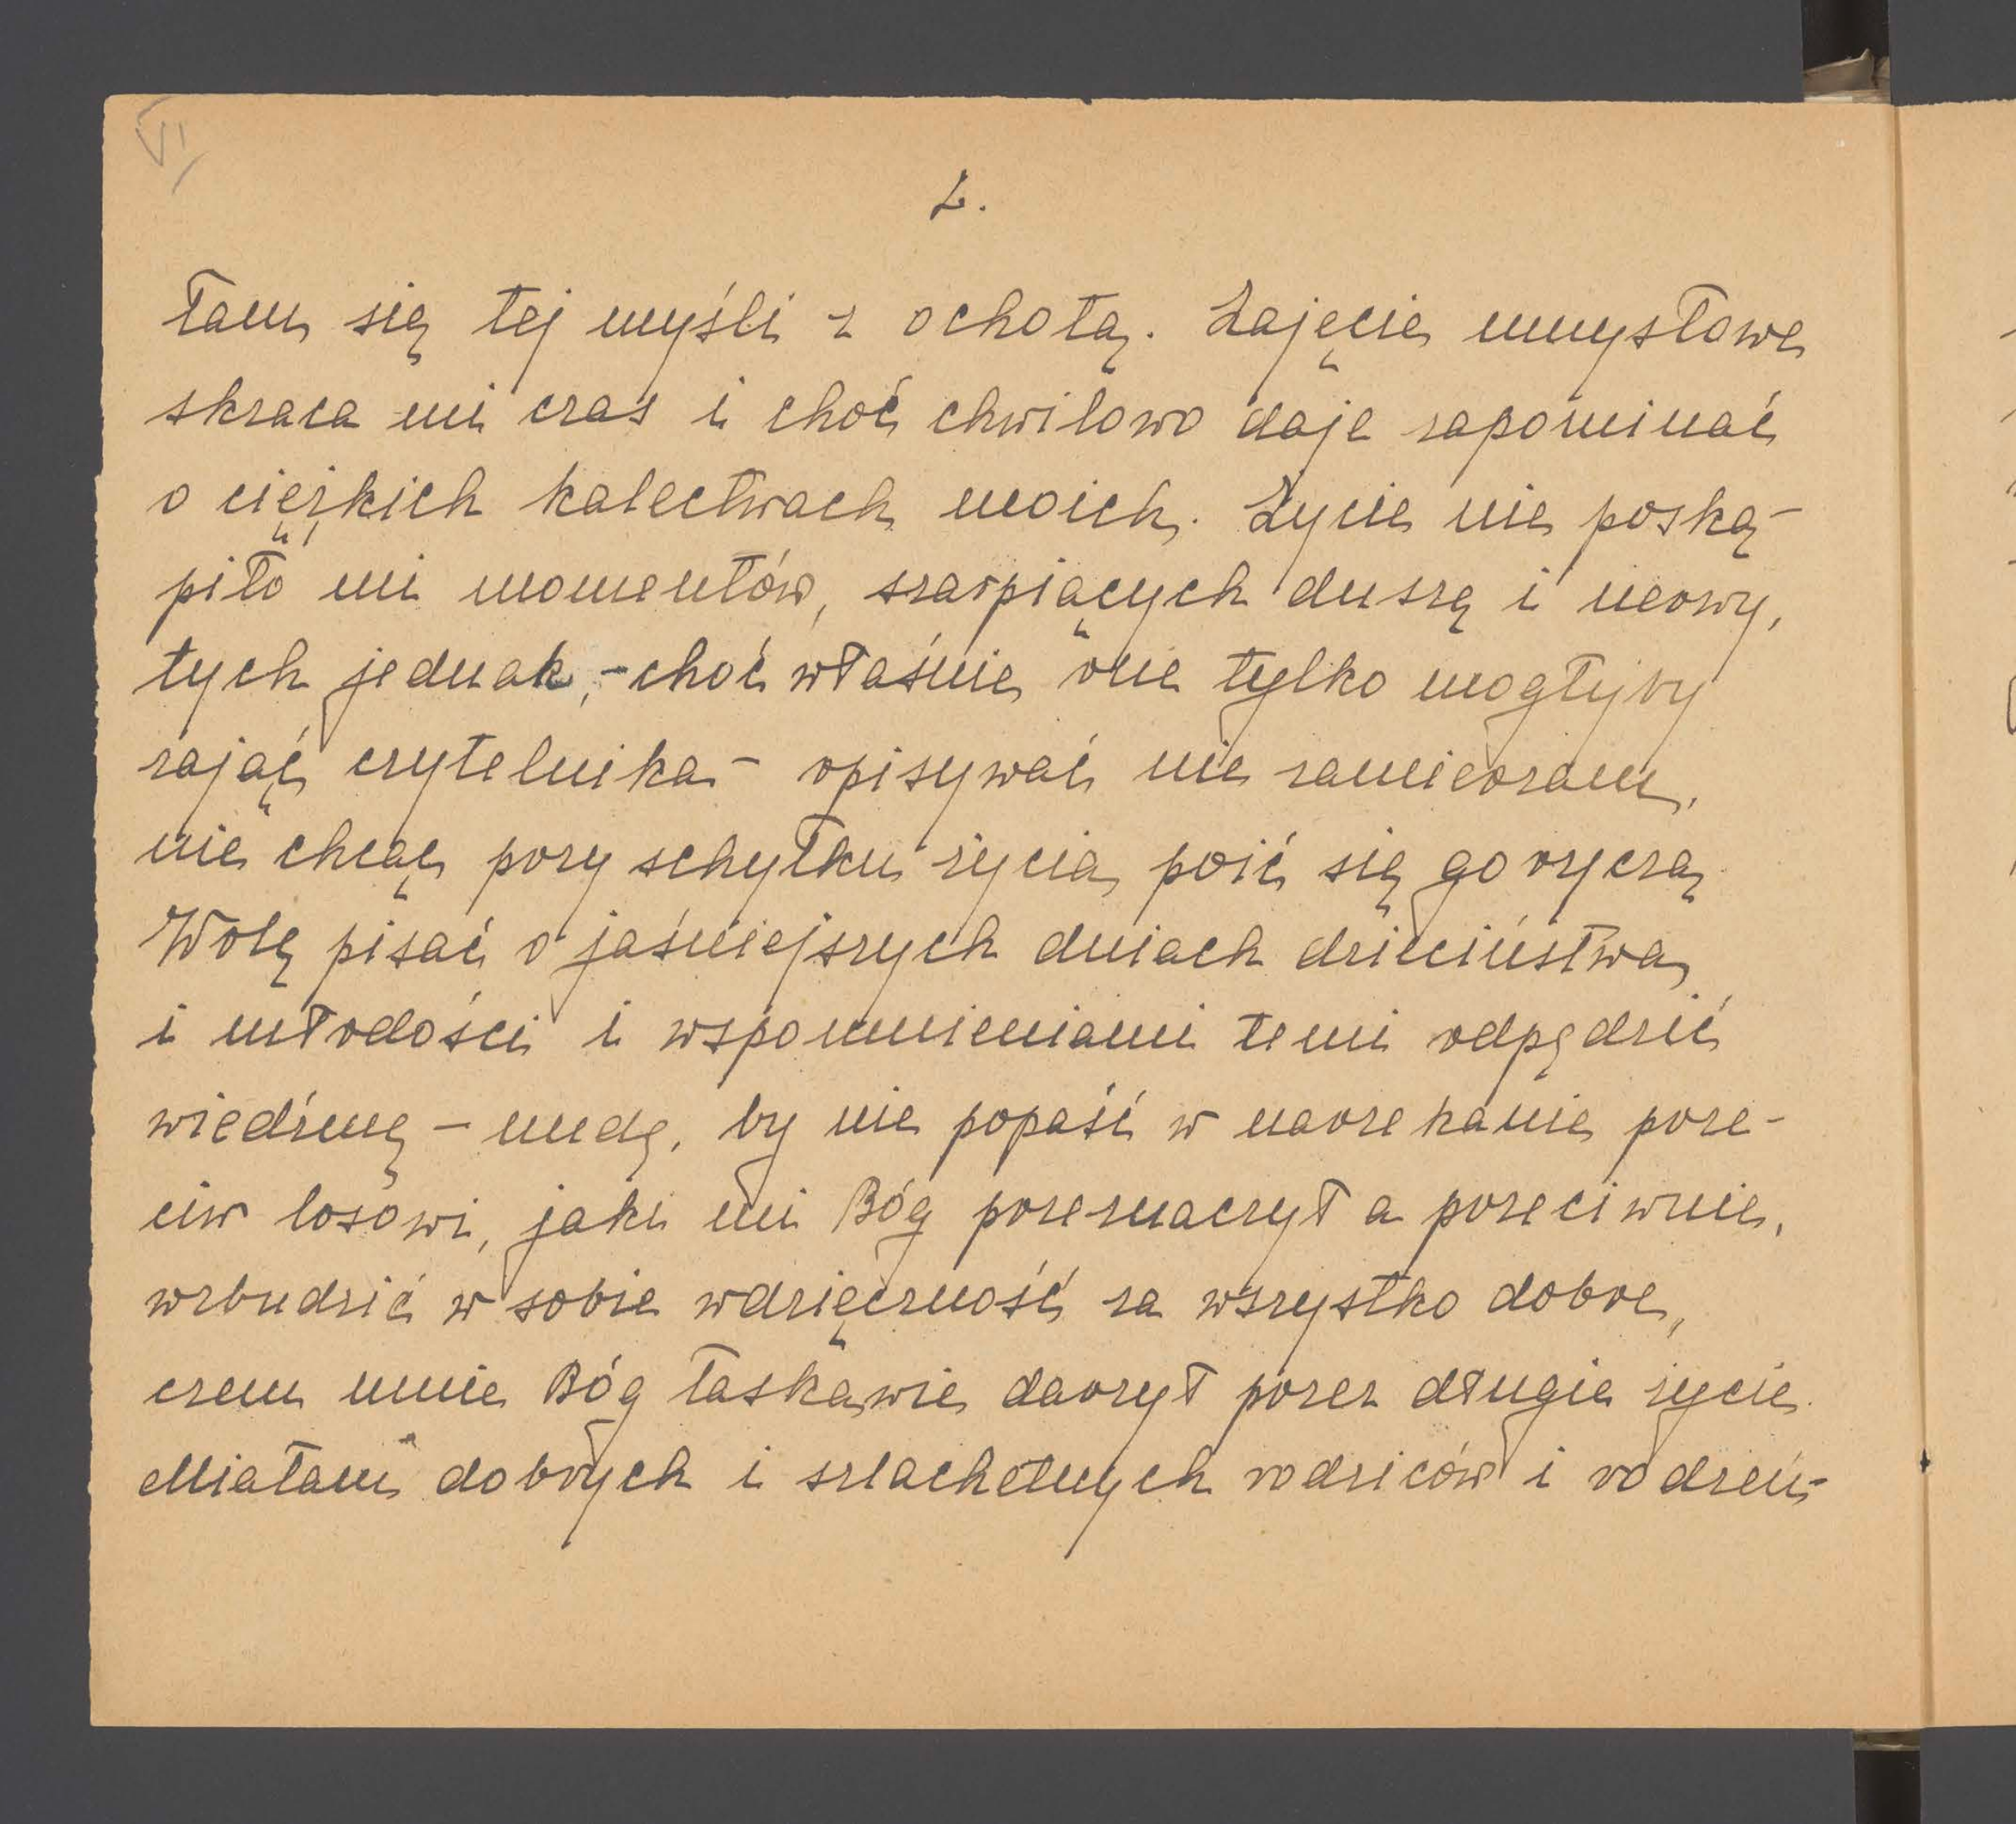 VI
2.
łam się tej myśli z ochotą. Zajęcie umysłowe
skraca mi czas i choć chwilowo daje zapominać
o ciężkich kalectwach moich. Życie nie poską-
piło mi momentów, szarpiących duszę i nerwy,
tych jednak, - choć właśnie one tylko mogłyby
zająć czytelnika - opisywać nie zamierzam,
nie chcąc przy schyłku życia poić się goryczą.
Wolę pisać o jaśniejszych dniach dzieciństwa
i młodości i wspomnieniami temi odpędzić
wiedźmę - nudę, by nie popaść w narzekanie prze-
ciw losowi, jaki mi Bóg przeznaczył a przeciwnie,
wzbudzić w sobie wdzięczność za wszystko dobre,
czem mnie Bóg łaskawie darzył przez długie życie.
Miałam dobrych i szlachetnych rodziców i rodzeń-